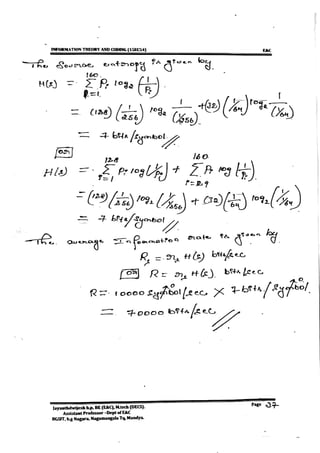 INFORMATION THEORY AND CODING (15EC54) E&C
The Source entropy is given by
H(s) = 160 Σ i=1 Pi log2 (1/Pi)
= (128) (1/256) log2 1/(1/256) + (32) (1/64) log2 1/(1/64)
= 7 bits/symbol //
(or)
H(s) = 128 Σ i=1 Pi log(1/Pi) + 160 Σ i=129 Pi log(1/Pi)
= (128) (1/256) log2 (1/1/256) + (32) (1/64) log2 (1/1/64)
= 7 bits/symbol //
The average Information rate is given by
Rs = rs H(s) bits/sec
(or) R = rs H(s). bits/sec
R = 10000 Symbol/sec × 7 bits/Symbol.
= 70000 bits/sec //
Jayanthdwijesh h.p, BE (E&C), M.tech (DECS). Page 37
Assistant Professor –Dept of E&C
BGSIT, b.g Nagara, Nagamangala Tq, Mandya.